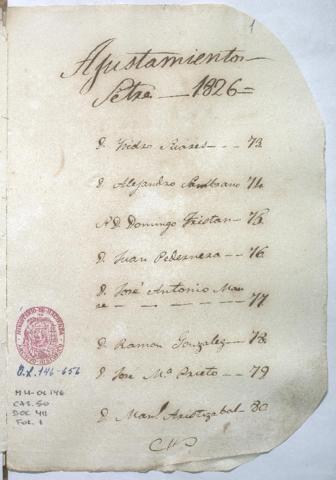 1
Ajustamientos
Setre — 1826 =
D. Pedro Suares - - - 73
D. Alejandro Sambrano 74
N. D. Domingo Tristan - 75
D. Juan Pedernera - - 76
D. José Antonio Man
re - - - - - 77
D. Ramon Gonzalez - - 78
D. Jose Ma. Prieto - - 79
D. Manl. Aristizabal - 80
MINISTERIO DE HACIENDA
O.L. 146-656
MH-OL 146
CAJ. 50
DOC 411
FOL. 1